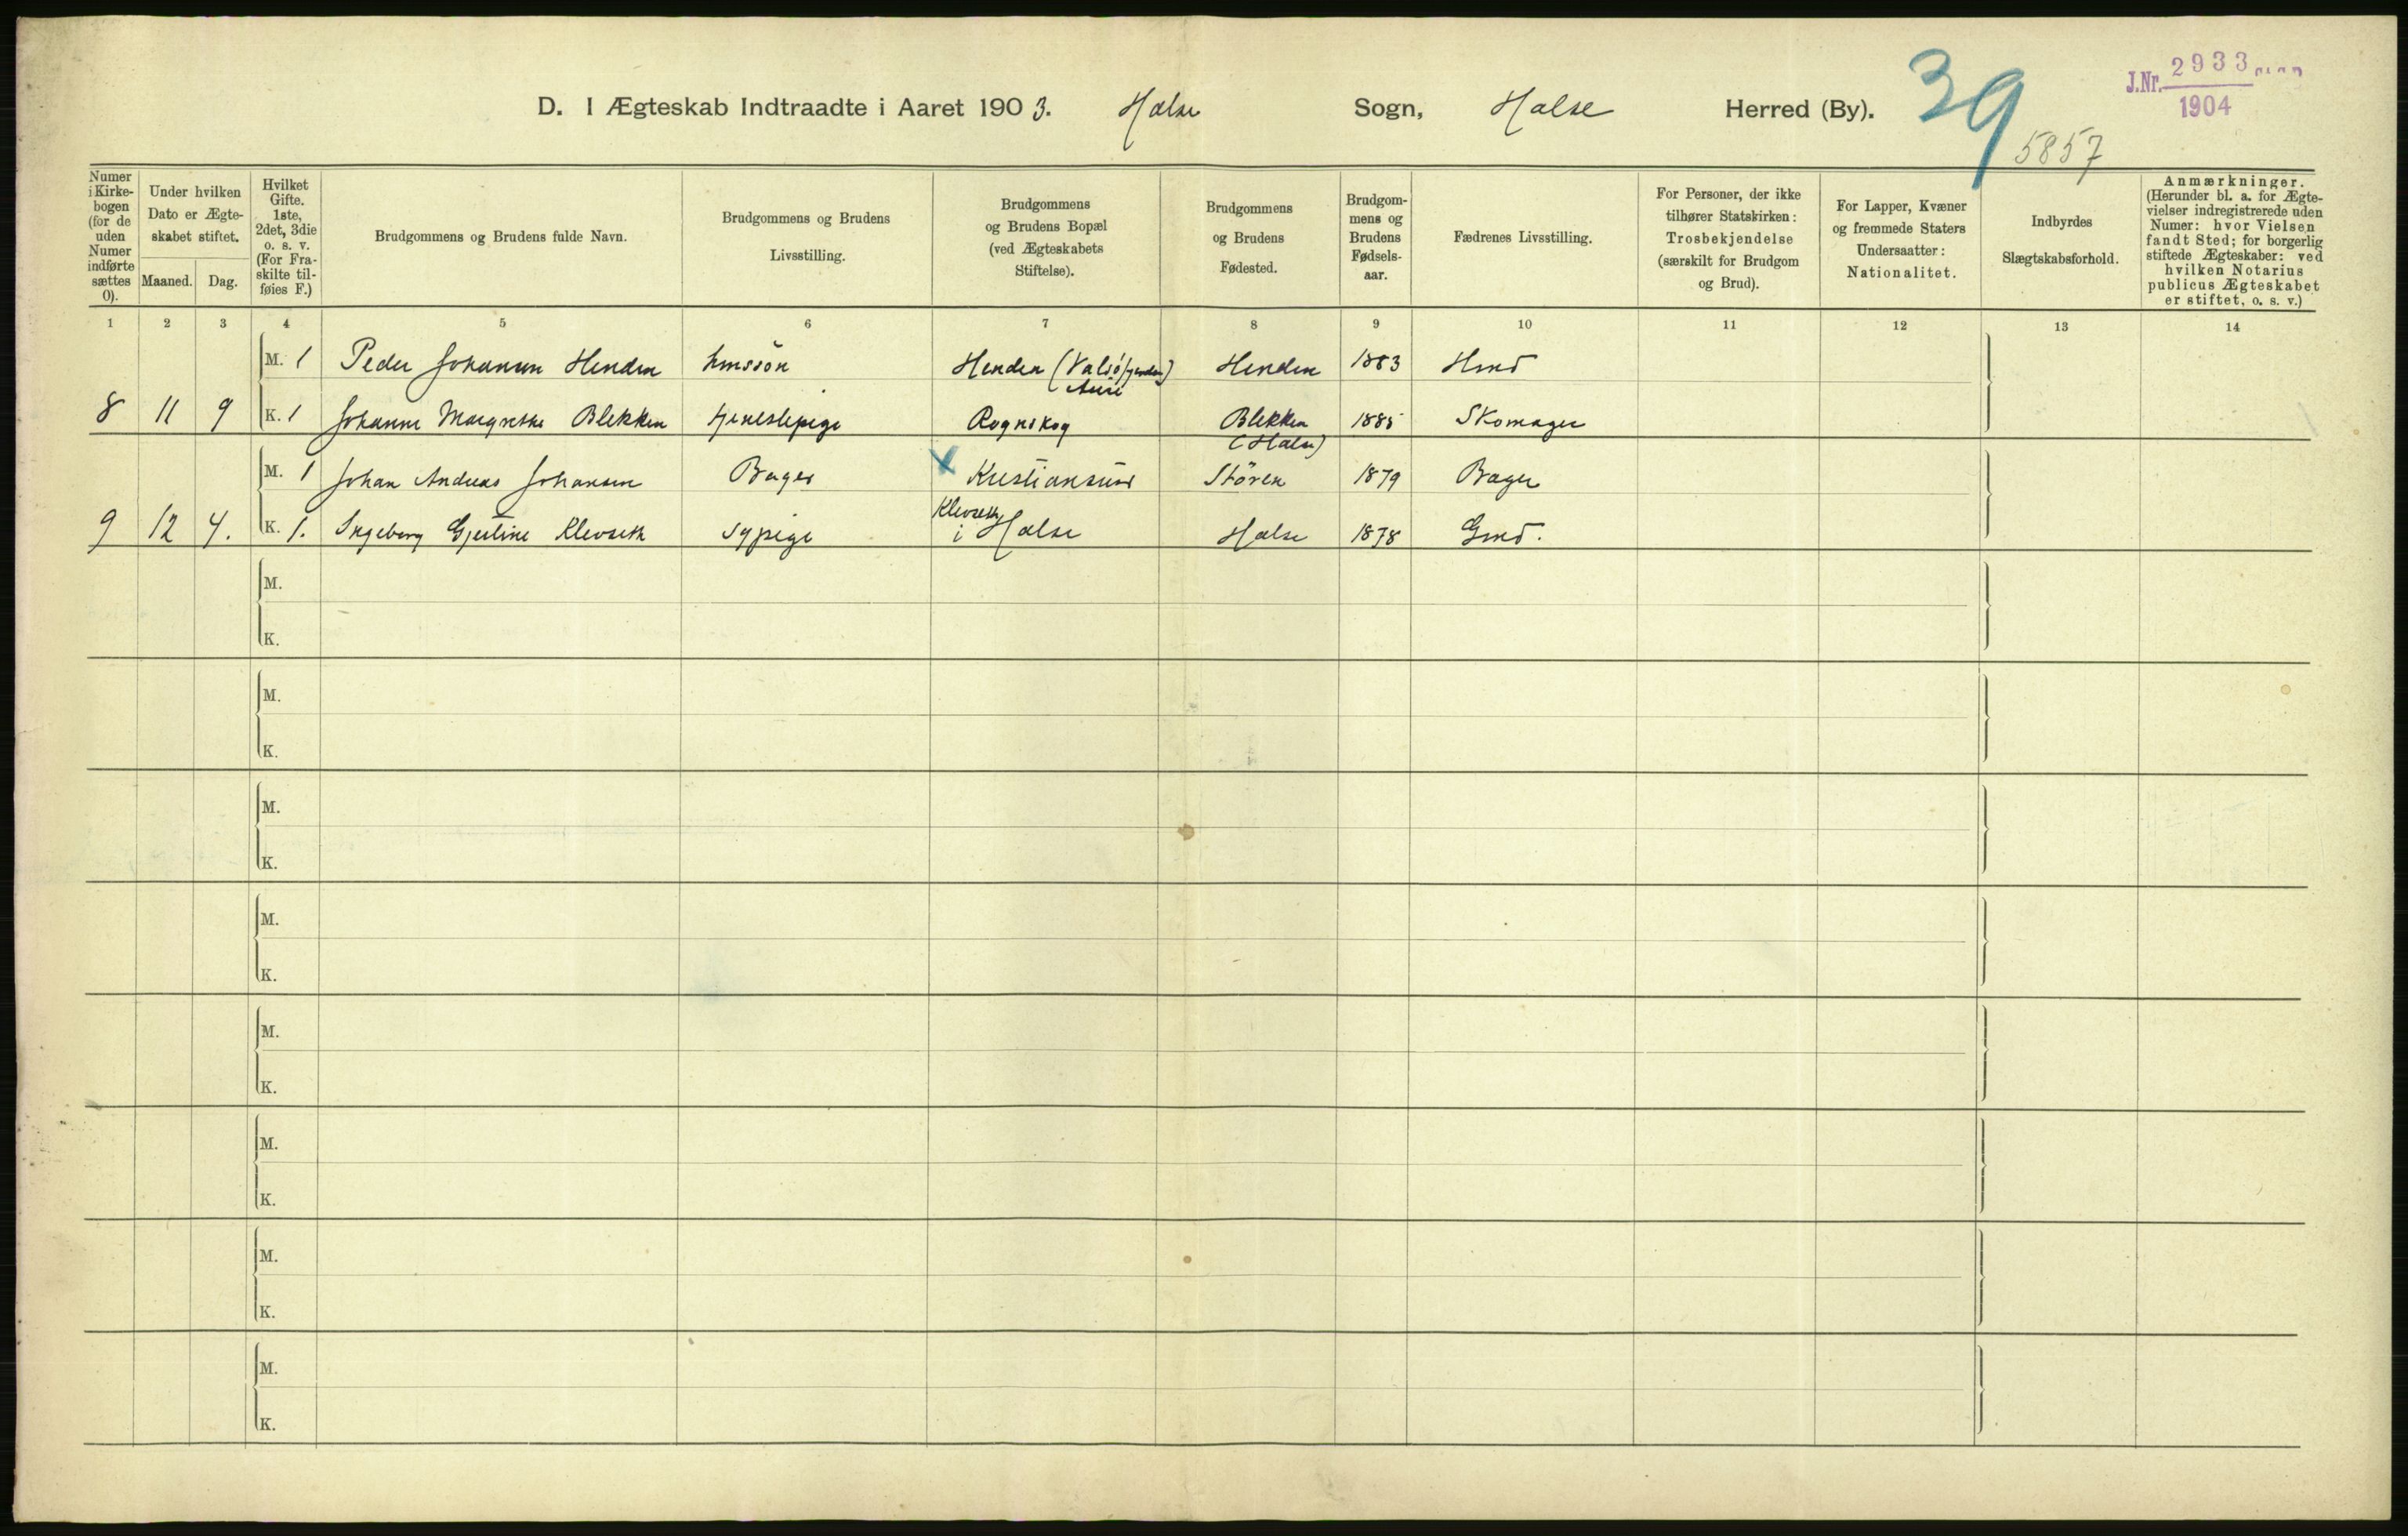 J.Nr. 2933
1904
D. I Ægteskab Indtraadte i Aaret 1903. Halse Sogn, Halse Herred (By).
39
5857
Numer i Kirkebogen (for de uden Numer indførte sættes 0).
Under hvilken Dato er Ægteskabet stiftet.
Maaned. Dag.
Hvilket Gifte. 1ste, 2det, 3die o. s. v. (For Fraskilte tilføies F.)
Brudgommens og Brudens fulde Navn.
Brudgommens og Brudens Livsstilling.
Brudgommens og Brudens Bopæl (ved Ægteskabets Stiftelse).
Brudgommens og Brudens Fødested.
Brudgommens og Brudens Fødselsaar.
Fædrenes Livsstilling.
For Personer, der ikke tilhører Statskirken: Trosbekjendelse (særskilt for Brudgom og Brud).
For Lapper, Kvæner og fremmede Staters Undersaatter: Nationalitet.
Indbyrdes Slægtskabsforhold.
Anmærkninger. (Herunder bl. a. for Ægtevielser indregistrerede uden Numer: hvor Vielsen fandt Sted; for borgerlig stiftede Ægteskaber: ved hvilken Notarius publicus Ægteskabet er stiftet, o. s. v.)
1 2 3 4 5 6 7 8 9 10 11 12 13 14
M. 1 Peder Johansen Henden Henden (Valsøfjorden) Henden 1883 Hmd
Aure
8 11 9 K. 1 Johanne Margrethe Blekken tjenestepige Rognskog Blekken 1885 Skomager
(Halse)
M. 1 Johan Andreas Johansen Bager x Kristiansund Støren 1879 Bager
Klevseth
9 12 4. K. 1. Ingeborg Gjertine Klevseth Sypige i Halse Halse 1878 Gmd.
M.
K.
M.
K.
M.
K.
M.
K.
M.
K.
M.
K.
M.
K.
M.
K.